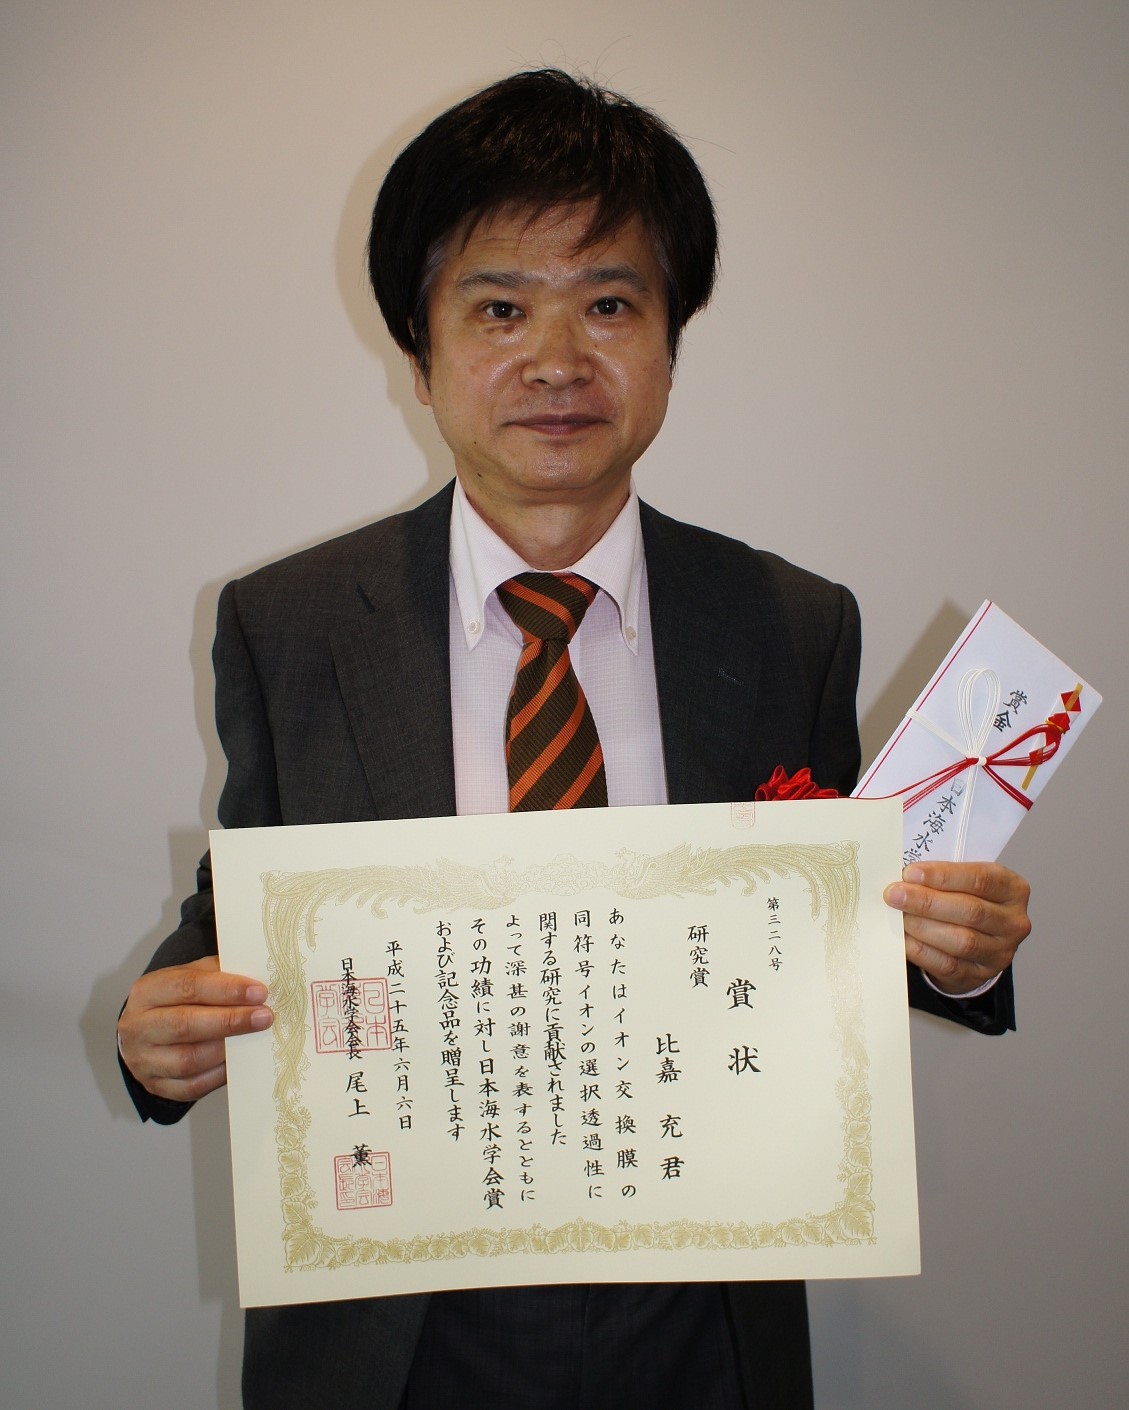 第三二八号
賞状
研究賞
比嘉 充 君
あなたはイオン交換膜の
同符号イオンの選択透過性に
関する研究に貢献されました
よって深甚の謝意を表するとともに
その功績に対し日本海水学会賞
および記念品を贈呈します
平成二十五年六月六日
日本海水学会会長 尾上 薫
日本
海水
学会
賞金
日本海水学